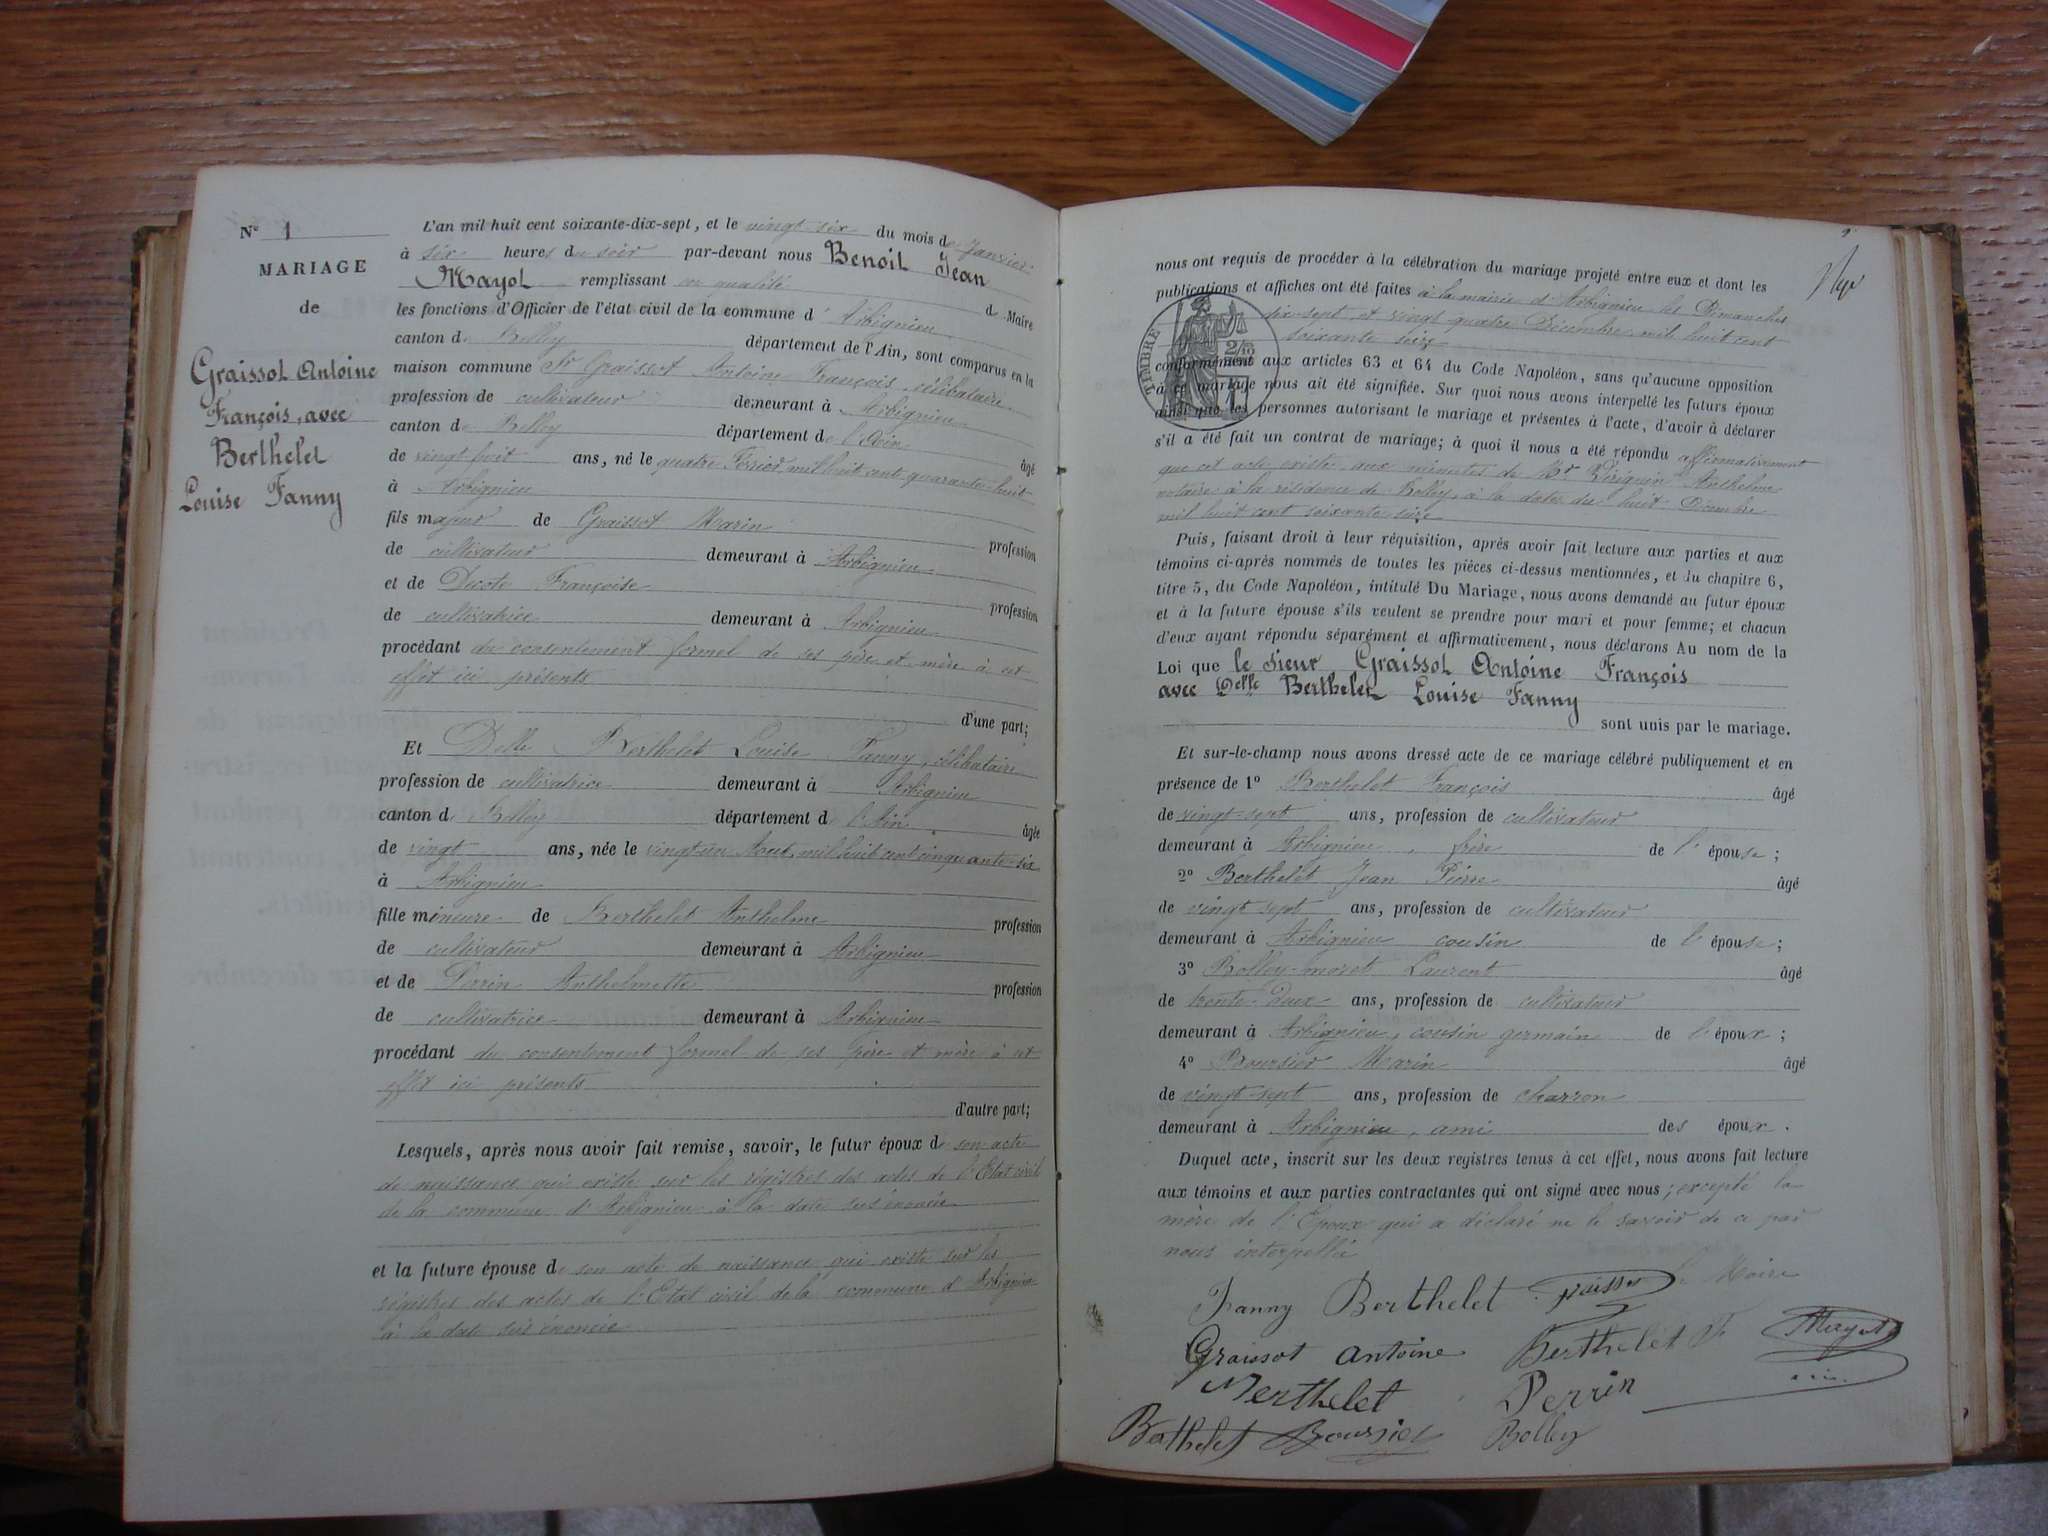 N° 1
MARIAGE
de
Graissot Antoine
François, avec
Berthelet
Louise Fanny
L'an mil huit cent soixante-dix-sept, et le vingt-six du mois de Janvier
à six heures du soir par-devant nous Benoit Jean
Mayot remplissant en qualité de Maire
les fonctions d'Officier de l'état civil de la commune d' Arbignieu
canton de Belley département de l'Ain, sont comparus en la
maison commune Sr Graissot Antoine François, célibataire
profession de cultivateur demeurant à Arbignieu
canton de Belley département de l'Ain âgé
de vingt huit ans, né le quatre Février mil huit cent quarante-huit
à Arbignieu
fils majeur de Graissot Marin profession
de cultivateur demeurant à Arbignieu
et de Françoise profession
de cultivatrice demeurant à Arbignieu
procédant du consentement formel de ses père et mère à cet
effet ici présents
d'une part;
Et Delle Berthelet Louise Fanny, célibataire
profession de cultivatrice demeurant à Arbignieu
canton de Belley département de l'Ain âgée
de vingt ans, née le vingt-un Aout mil huit cent cinquante six
à Arbignieu
fille mineure de Berthelet Anthelme profession
de cultivateur demeurant à Arbignieu
et de Perrin Anthelmette profession
de cultivatrice demeurant à Arbignieu
procédant du consentement formel de ses père et mère à cet
effet ici présents
d'autre part;
Lesquels, après nous avoir fait remise, savoir, le futur époux de son acte
de naissance qui existe sur les régistres des actes de l'Etat civil
de la commune d'Arbignieu à la date sus énoncée
et la future épouse de son acte de naissance qui existe sur les
régistres des actes de l'Etat civil de la commune d'Arbignieu
à la date sus énoncée
nous ont requis de procéder à la célébration du mariage projeté entre eux et dont les
publications et affiches ont été faites à la mairie d'Arbignieu les Dimanches
dix-sept et vingt quatre Décembre mil huit cent
soixante seize
TIMBRE
2/10
conformément aux articles 63 et 64 du Code Napoléon, sans qu'aucune opposition
à ce mariage nous ait été signifiée. Sur quoi nous avons interpellé les futurs époux
ainsi que les personnes autorisant le mariage et présentes à l'acte, d'avoir à déclarer
s'il a été fait un contrat de mariage; à quoi il nous a été répondu affirmativement
que cet acte existe aux minutes de Mr Anthelme
notaire à la résidence de Belley, à la date du huit Décembre
mil huit cent soixante seize
Puis, faisant droit à leur réquisition, après avoir fait lecture aux parties et aux
témoins ci-après nommés de toutes les pièces ci-dessus mentionnées, et du chapitre 6,
titre 5, du Code Napoléon, intitulé Du Mariage, nous avons demandé au futur époux
et à la future épouse s'ils veulent se prendre pour mari et pour femme; et chacun
d'eux ayant répondu séparément et affirmativement, nous déclarons Au nom de la
Loi que le sieur Graissot Antoine François
avec Delle Berthelet Louise Fanny
sont unis par le mariage.
Et sur-le-champ nous avons dressé acte de ce mariage célébré publiquement et en
présence de 1° Berthelet François âgé
de vingt-sept ans, profession de cultivateur
demeurant à Arbignieu, frère de l'épouse;
2° Berthelet Jean Pierre âgé
de vingt sept ans, profession de cultivateur
demeurant à Arbignieu cousin de l'épouse;
3° Bolley-moret Laurent âgé
de trente-deux ans, profession de cultivateur
demeurant à Arbignieu, cousin germain de l'époux;
4° Boursier Marin âgé
de vingt-sept ans, profession de charron
demeurant à Arbignieu, ami des époux.
Duquel acte, inscrit sur les deux registres tenus à cet effet, nous avons fait lecture
aux témoins et aux parties contractantes qui ont signé avec nous; excepté la
mère de l'Epoux qui a déclaré ne le savoir de ce par
nous interpellée
Le Maire
Fanny Berthelet Graissot
Graissot antoine Berthelet F Mayot
Berthelet Perrin
Berthelet Boursier Bolley